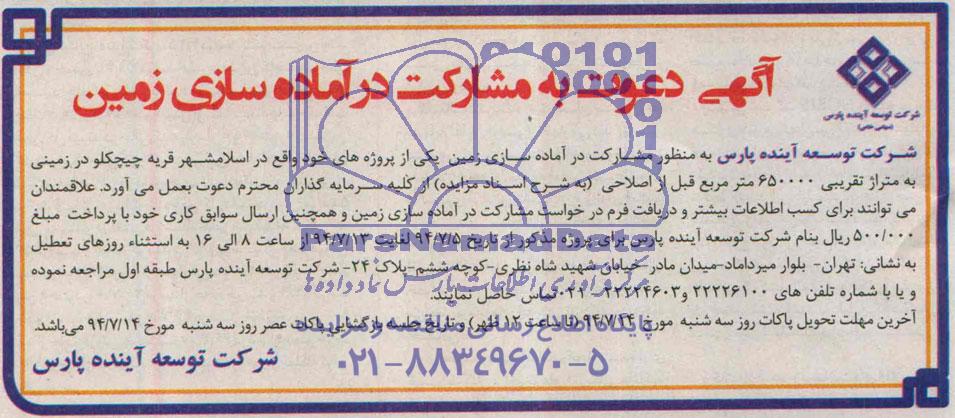 آگهی دعوت به مشارکت در آماده سازی زمین
شرکت توسعه آینده پارس
(سهامی خاص)
شرکت توسعه آینده پارس به منظور مشارکت در آماده سازی زمین یکی از پروژه های خود واقع در اسلامشهر قریه چیچکلو در زمینی
به متراژ تقریبی ۶۵۰۰۰۰ متر مربع قبل از اصلاحی (به شرح اسناد مزایده) از کلیه سرمایه گذاران محترم دعوت بعمل می آورد. علاقمندان
می توانند برای کسب اطلاعات بیشتر و دریافت فرم در خواست مشارکت در آماده سازی زمین و همچنین ارسال سوابق کاری خود با پرداخت مبلغ
۵۰۰/۰۰۰ ریال بنام شرکت توسعه آینده پارس برای پروژه مذکور از تاریخ ۹۴/۷/۵ لغایت ۹۴/۷/۱۳ از ساعت ۸ الی ۱۶ به استثناء روزهای تعطیل
به نشانی: تهران- بلوار میرداماد-میدان مادر-خیابان شهید شاه نظری-کوچه ششم-پلاک ۲۴- شرکت توسعه آینده پارس طبقه اول مراجعه نموده
و یا با شماره تلفن های ۲۲۲۲۶۱۰۰ و ۲۲۲۲۴۶۰۳-۰۲۱ تماس حاصل نمایند.
آخرین مهلت تحویل پاکات روز سه شنبه مورخ ۹۴/۷/۱۴ (تا ساعت ۱۲ ظهر) و تاریخ جلسه بازگشایی پاکات عصر روز سه شنبه مورخ ۹۴/۷/۱۴ می‌باشد.
شرکت توسعه آینده پارس
پایگاه اطلاع رسانی مناقصه و مزایده
۰۲۱-۸۸۳۴۹۶۷۰-۵